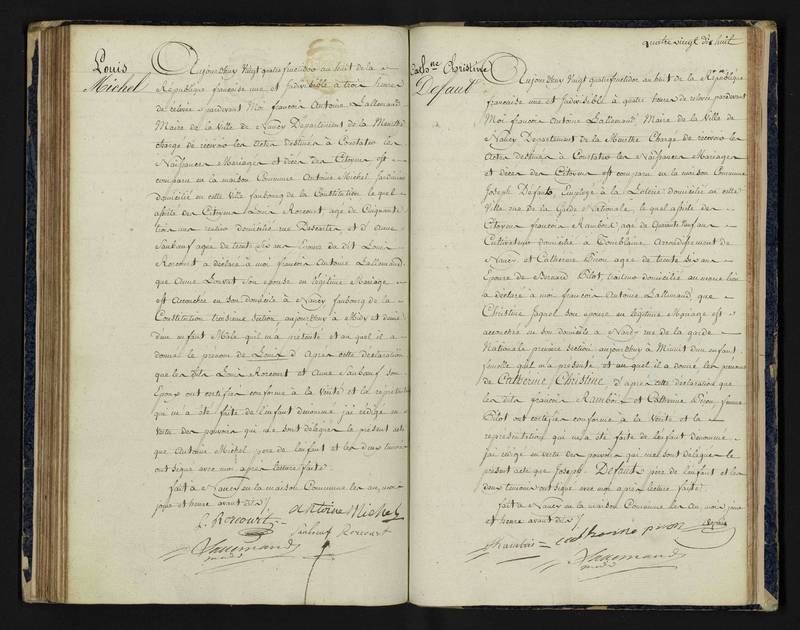 Louis
Michel
Aujourdhuy Vingt quatre fructidor an huit de la
République francaise une et Indivisible à trois heures
de relevée pardevant Moi francois Antoine Lallemand
Maire de la Ville de Nancy Departement de la Meurthe
Chargé de recevoir les Actes destinés à Constater les
Naissances Mariages et décès des Citoyens est
comparu en la maison Commune Antoine Michel Jardinier
domicilié en cette Ville faubourg de la Constitution le quel
assisté des Citoyens Louis Rorcourt agé de Cinquante
trois ans domicilié rue Descartes et d'Anne
Saubeuf agée de trente six ans Epouse du dit Louis
Rorcourt a déclaré à moi francois Antoine Lallemand
que Anne Louvet son épouse en légitime Mariage
est accouchée en son domicile à Nancy faubourg de la
Constitution troisieme Section aujourdhuy à Midy et demie
d'un enfant Male qu'il m'a présenté et au quel il a
donné le prenom de Louis d'Après cette déclaration
que les dits Louis Rorcourt et Anne Saubeuf son
Epouse ont certifiée conforme à la Verité et la représentation
qui m'a été faite de l'enfant denommé j'ai rédigé en
vertu des pouvoirs qui me sont délégués le présent acte
que Antoine Michel pere de l'enfant et les deux temoins
ont signé avec moi après lecture faite.
fait à Nancy en la maison Commune les an, mois
jour et heure avant dits
L. Rorcourt Antoine Michel
Saubeuf Rorcourt
Lallemand
quatre vingt dix huit
Cathne Christine
Defaut
Aujourdhuy Vingt quatre fructidor an huit de la République
francaise une et Indivisible à quatre heures de relevée pardevant
Moi francois Antoine Lallemand Maire de la Ville de
Nancy Departement de la Meurthe Chargé de recevoir les
Actes destinés à Constater les Naissances Mariages
et décès des Citoyens est comparu en la maison Commune
Joseph Defaut, Employé à la Loterie domicilié en cette
Ville rue de la Garde Nationale, le quel assisté des
Citoyens francois Rambois agé de
Cultivateur domicilié à Arrondissement de
Nancy et Catherine Pison agée de trente six ans
Epouse de Bernard Pilot, domiciliée au meme lieu
a déclaré à moi francois Antoine Lallemand, que
Christine Jaquel son epouse en légitime Mariage est
accouchée en son domicile à Nancy rue de la garde
Nationale premiere section aujourdhuy à Minuit d'un enfant
femelle quil m'a présenté et au quel il a donné les prenoms
de Catherine Christine d'après cette déclaration que
les dits francois Rambois et Catherine Pison femme
Pilot ont certifiée conforme à la Verité et la
représentation qui m'a été faite de l'enfant denommé
j'ai rédigé en vertu des pouvoirs qui me sont délégués le
présent acte que Joseph Defaut pere de l'enfant et les
deux temoins ont signé avec moi après lecture faite.
fait à Nancy en la maison Commune les An mois jour
et heure avant dits
fRambois catherine pison Defaut
Lallemand